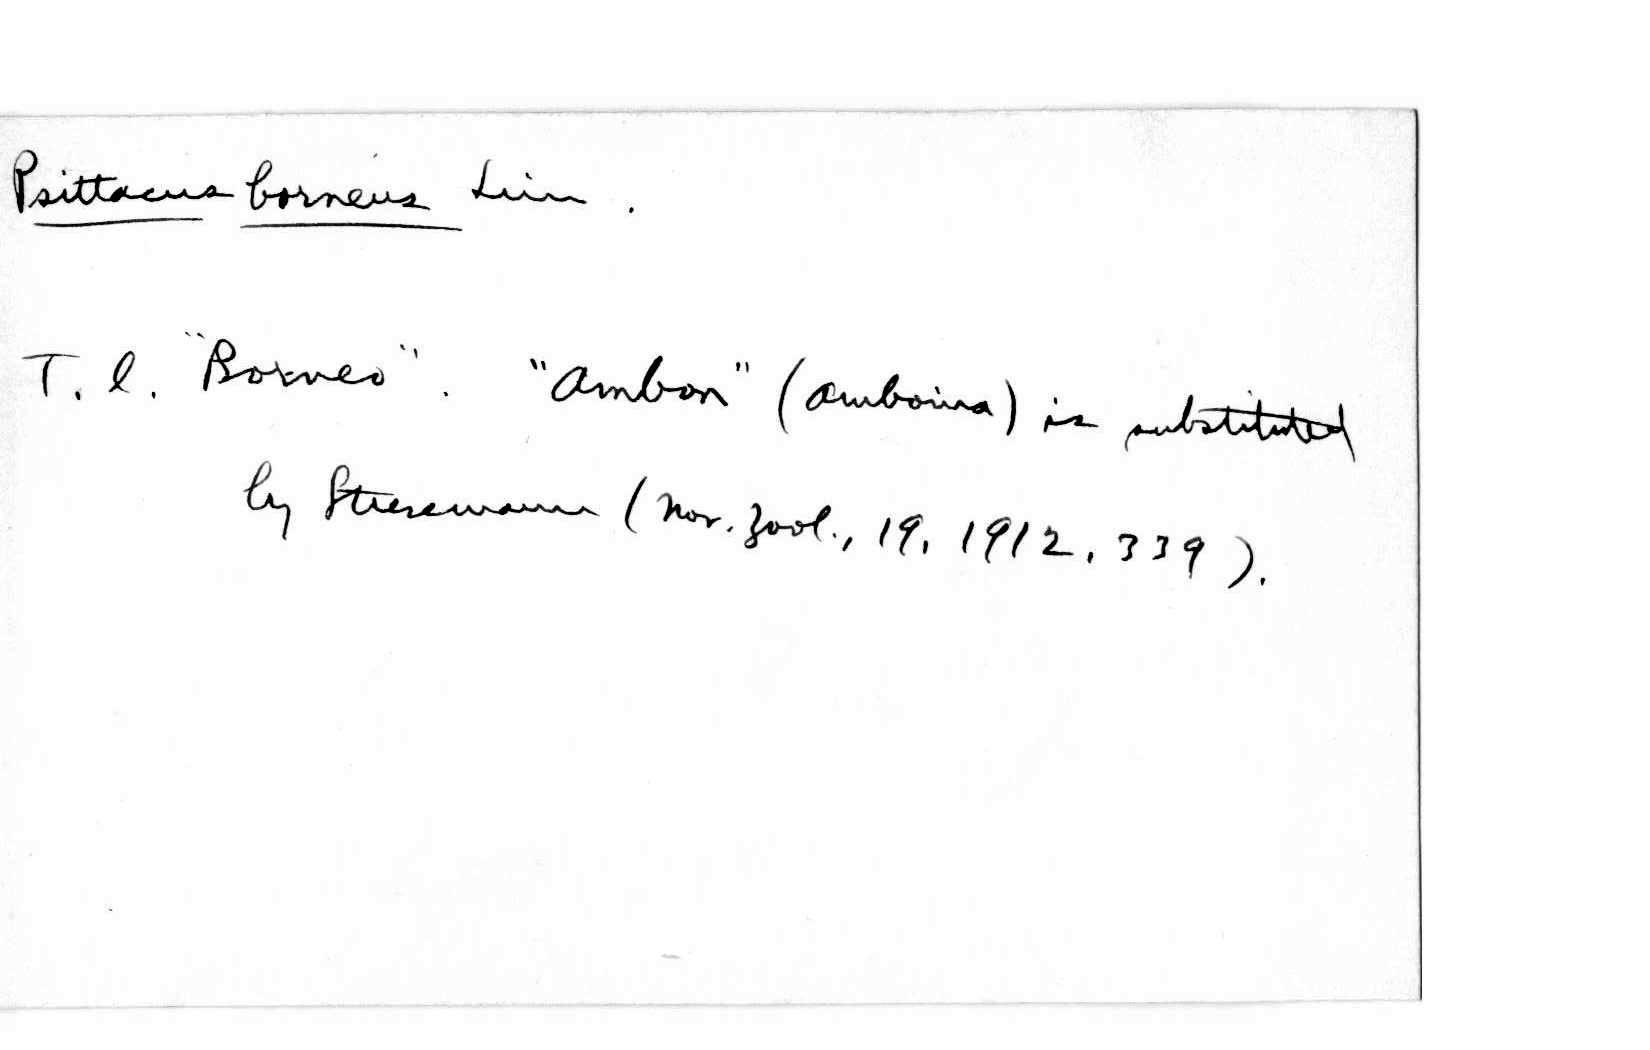 Psittacus borneus Linn.
T. l. "Borneo". "Ambon" (Amboina) is substituted
by Stresemann (Nov. Zool., 19, 1912, 339).